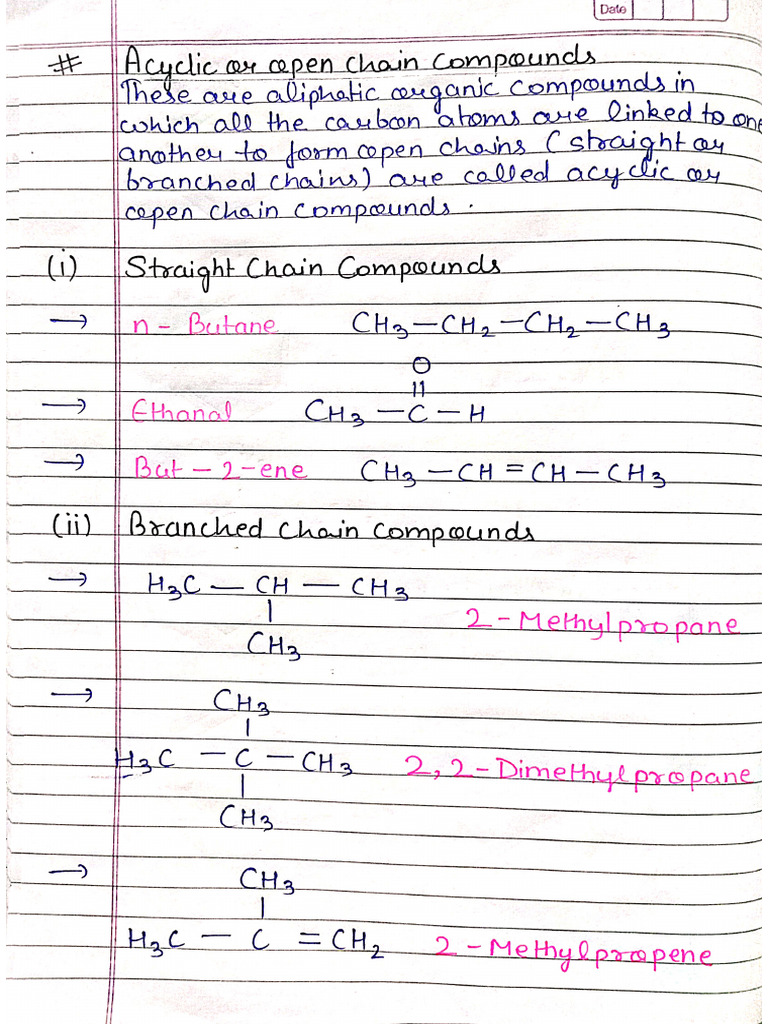 Date
# Acyclic or open chain compounds
These are aliphatic organic compounds in
which all the carbon atoms are linked to one
another to form open chains (straight or
branched chains) are called acyclic or
open chain compounds.
(i) Straight Chain Compounds
→ n - Butane CH₃—CH₂—CH₂—CH₃
O
||
→ Ethanal CH₃—C—H
→ But - 2 - ene CH₃—CH=CH—CH₃
(ii) Branched chain compounds
→ H₃C—CH—CH₃
|
2 - Methylpropane
CH₃
→ CH₃
|
H₃C—C—CH₃ 2,2 - Dimethylpropane
|
CH₃
→ CH₃
|
H₃C—C=CH₂ 2 - Methylpropene